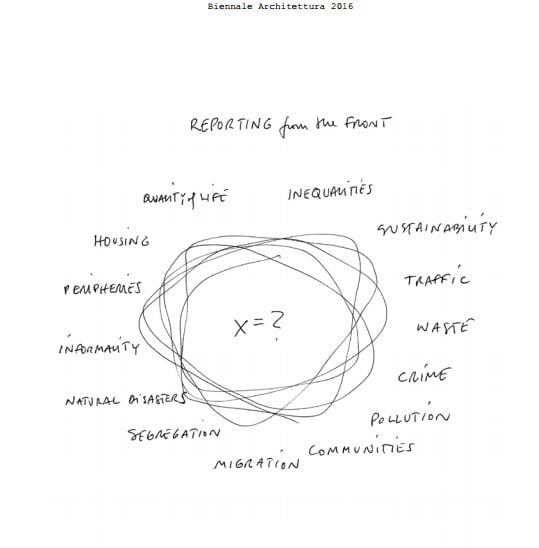 Biennale Architettura 2016
REPORTING from the FRONT
QUALITY of LIFE
INEQUALITIES
HOUSING
SUSTAINABILITY
PERIPHERIES
TRAFFIC
X = ?
WASTE
INFORMALITY
CRIME
NATURAL DISASTERS
POLLUTION
SEGREGATION
COMMUNITIES
MIGRATION